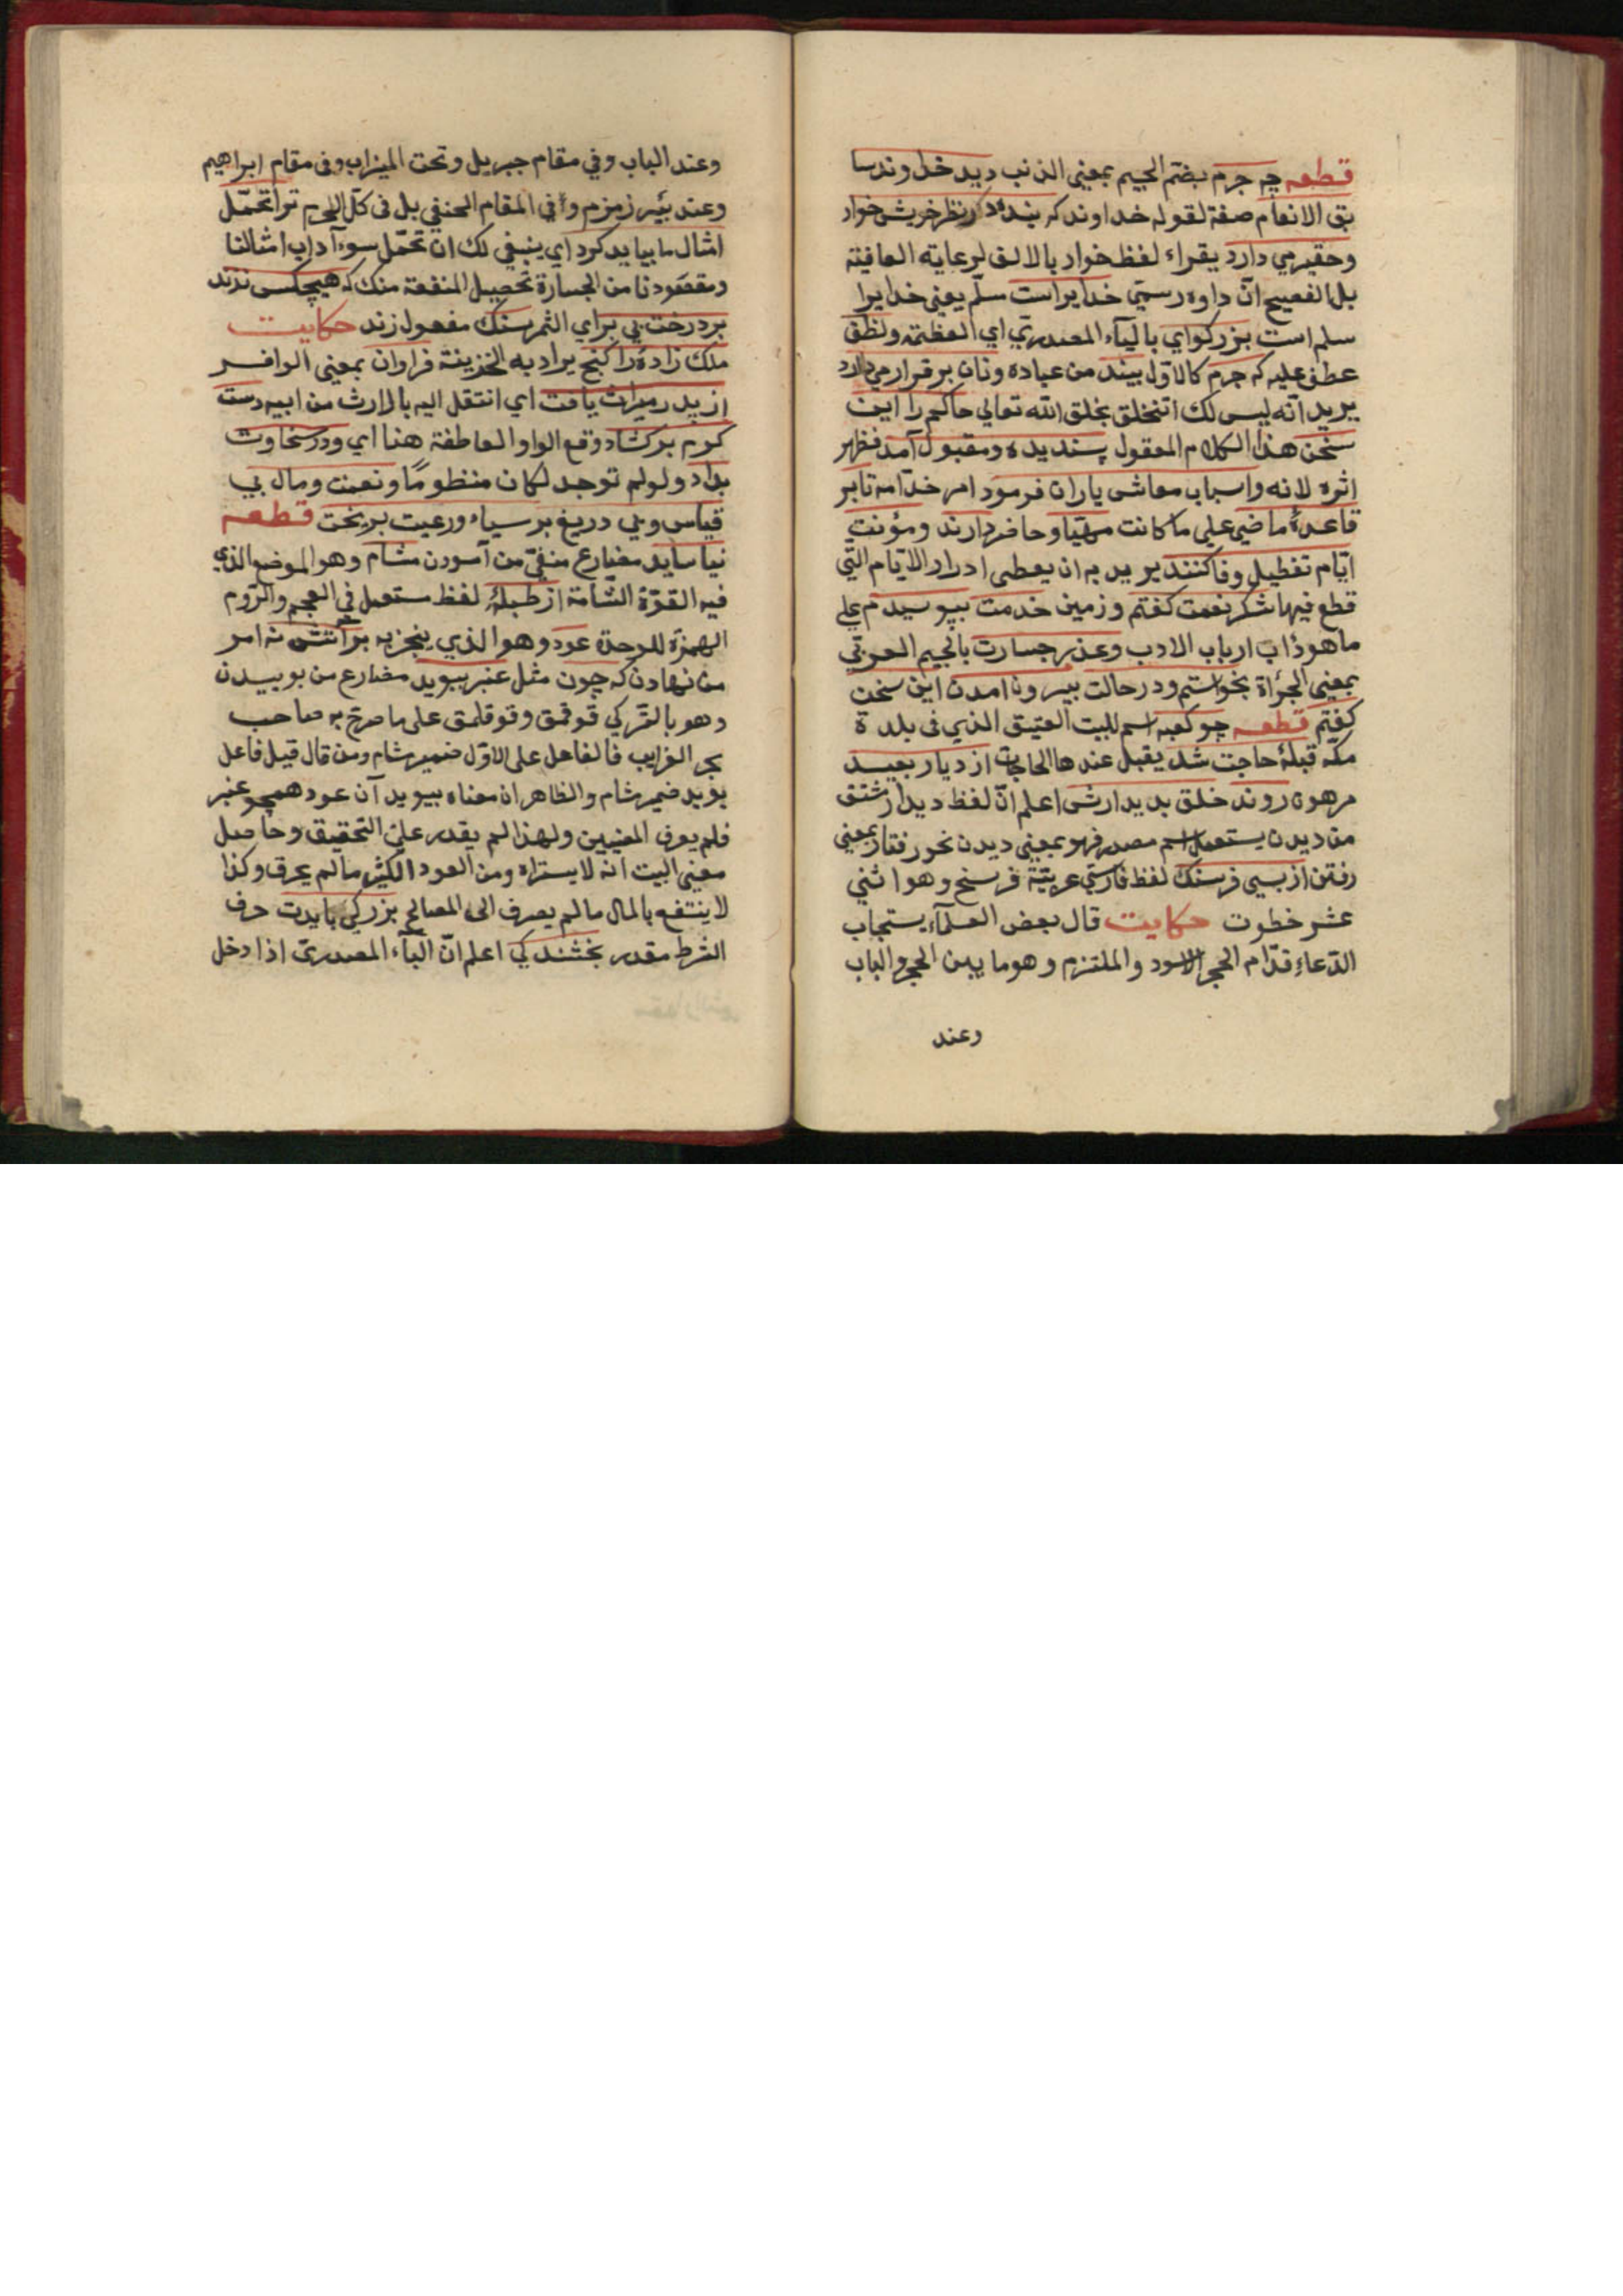 قطعه چه جرم بضم الجيم بمعنى الذنب ديد خداوند سا
بق الانعام صفة لقوله خداوند كه بنده در نظر خويش خوار
وحقير مي دارد يقراء لفظ خوار بالالف لرعاية القافية
بل الفصيح ان داوه رسمي خدايراست مسلم يعنى خدايرا
سلم است بزركواي بالياء المصدري اي العظمة ولطف
عطف عليه كه جرم كالاول بيند من عباده ونان برقرار مي دارد
يريد انه ليس لك اتتخلق بخلق الله تعالي حاكم را اين
سخن هذا الكلام المعقول پسنديده ومقبول آمد فظهر
اثره لانه واسباب معاش ياران فرمود امر خدامه تا بر
قاعدۀ ماضي علي ما كانت مهيا وحاضر دارند ومؤنت
ايام تعطيل وفا كنند يريد به ان يعطى ادرار الايام التي
قطع فيها شكر نعمت كفتم وزمين خدمت ببوسيدم علي
ما هو دٔاب ارباب الادب وعذر جسارت بالجيم العربي
بمعنى الجرٔاة بخواستم ودر حالت بيرون امدن اين سخن
كفتم قطعه چو كعبه اسم للبيت العتيق الذي فى بلدة
مكه قبلۀ حاجت شد يقبل عندها الحاجات از ديار بعيد
مرهون روند خلق بديدارش اعلم ان لفظ ديدار مشتق
من ديدن يستعمل اسم مصدر فهو بمعنى ديدن نحو رفتار بمعنى
رفتن از بسي فرسنك لفظ فارسي عربيته فرسخ وهو اثني
عشر خطوت حكايت قال بعض العلماء يستجاب
الدعاء قدام الحجر الاسود والملتزم وهو ما بين الحجر والباب
وعند
وعند الباب وفي مقام جبريل وتحت الميزاب وفى مقام ابراهيم
وعند بئير زمزم وفي المقام الحنفي بل فى كل الحرم ترا تحمل
امثال ما ببايد كرد اي ينبغي لك ان تحمل سوء آداب امثالنا
ومقصودنا من الجسارة تحصيل المنفعة منك كه هيچكس نزند
بر درخت بي براي الثمر سنك مفعول زند حكايت
ملك زاده را كنج يراد به الخزينة فراوان بمعنى الوافر
از پدر ميراث يافت اي انتقل اليه بالارث من ابيه دست
كرم بركشاد وقع الواو العاطفة هنا اي ودر سخاوت
بداد ولو لم توجد لكان منظومًا ونعمت ومال بي
قياس وبي دريغ بر سپاه ورعيت بريخت قطعه
نياسايد مضارع منفي من آسودن مشام وهو الموضع الذي
فيه القوة الشامة از طبلۀ لفظ مستعمل في العجم والروم
الهمزة للوحدة عود وهو الذي ينجز به بر آتش نه امر
من نهادن كه چون مثل عنبر ببويد مضارع من بوييدن
وهو بالتركي قوقمق وقوقلمق على ما صرح به صاحب
بحر الغرايب فالفاعل على الاول ضمير مشام ومن قال قيل فاعل
بويد ضمير مشام والظاهر ان معناه ببويد آن عود همچو عنبر
فلم يعرف المعنيين ولهذا لم يقدر على التحقيق وحاصل
معنى البيت انه لا يستراه ومن العود الكثير ما لم يحرق وكذا
لا ينتفع بالمال ما لم يصرف الى المصالح بزركي بايدت حرف
الشرط مقدر بخشندكي اعلم ان الياء المصدرى اذا دخل